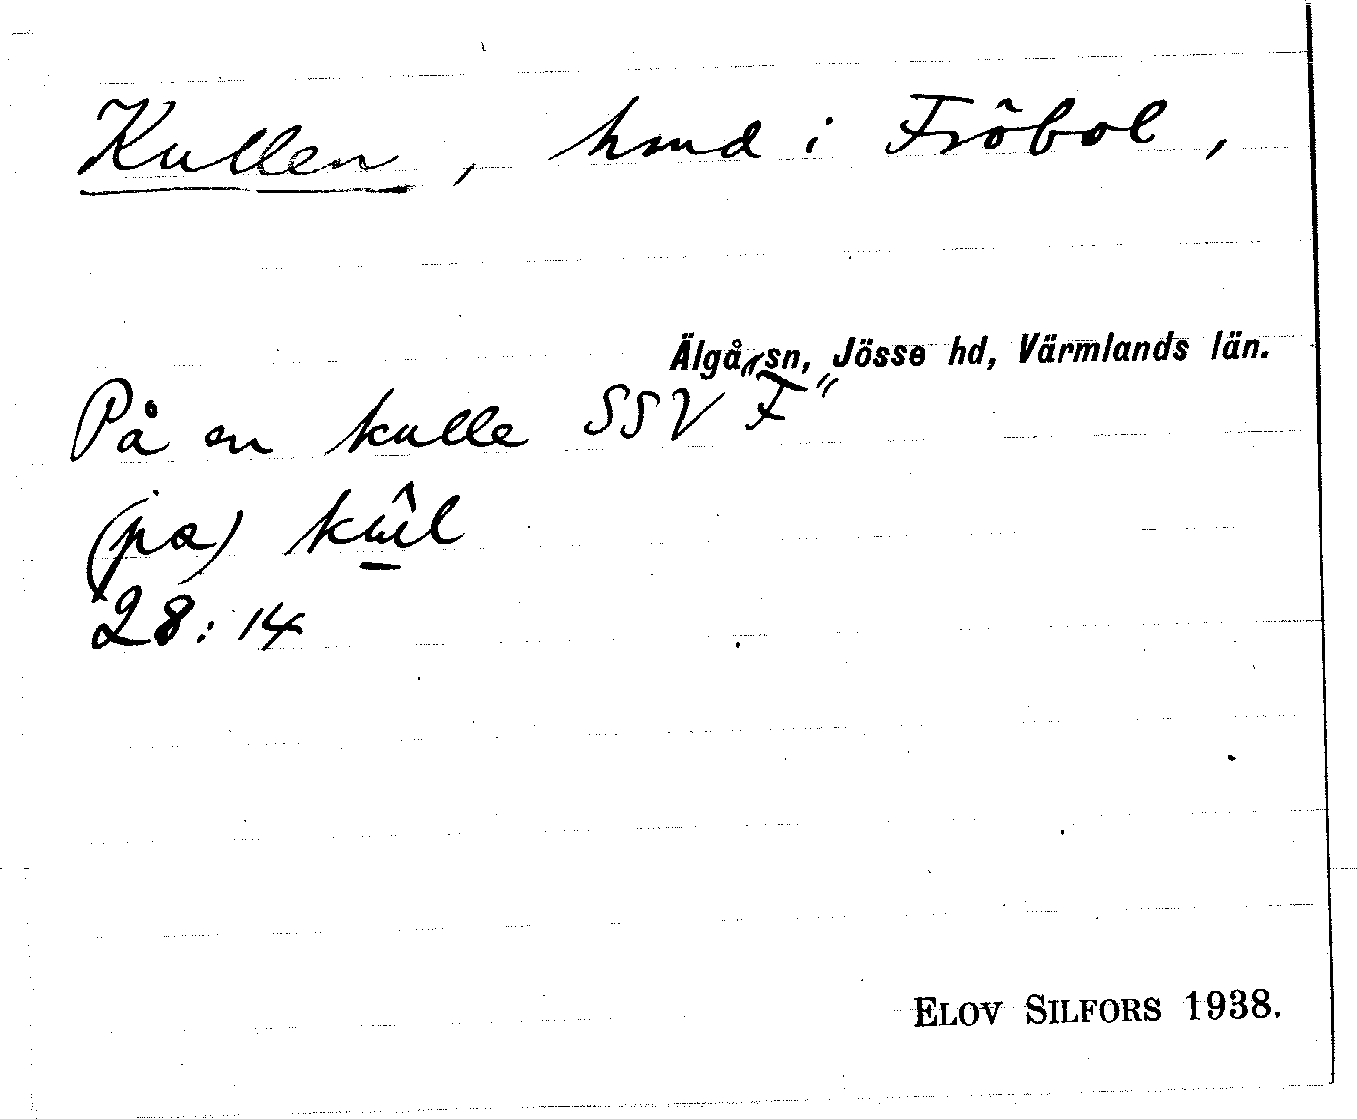 Kullen, hmd i Fröbol,
Älgå sn, Jösse hd, Värmlands län.
På en kulle SSV "F"
(pa) kûl
28:14
ELOV SILFORS 1938.